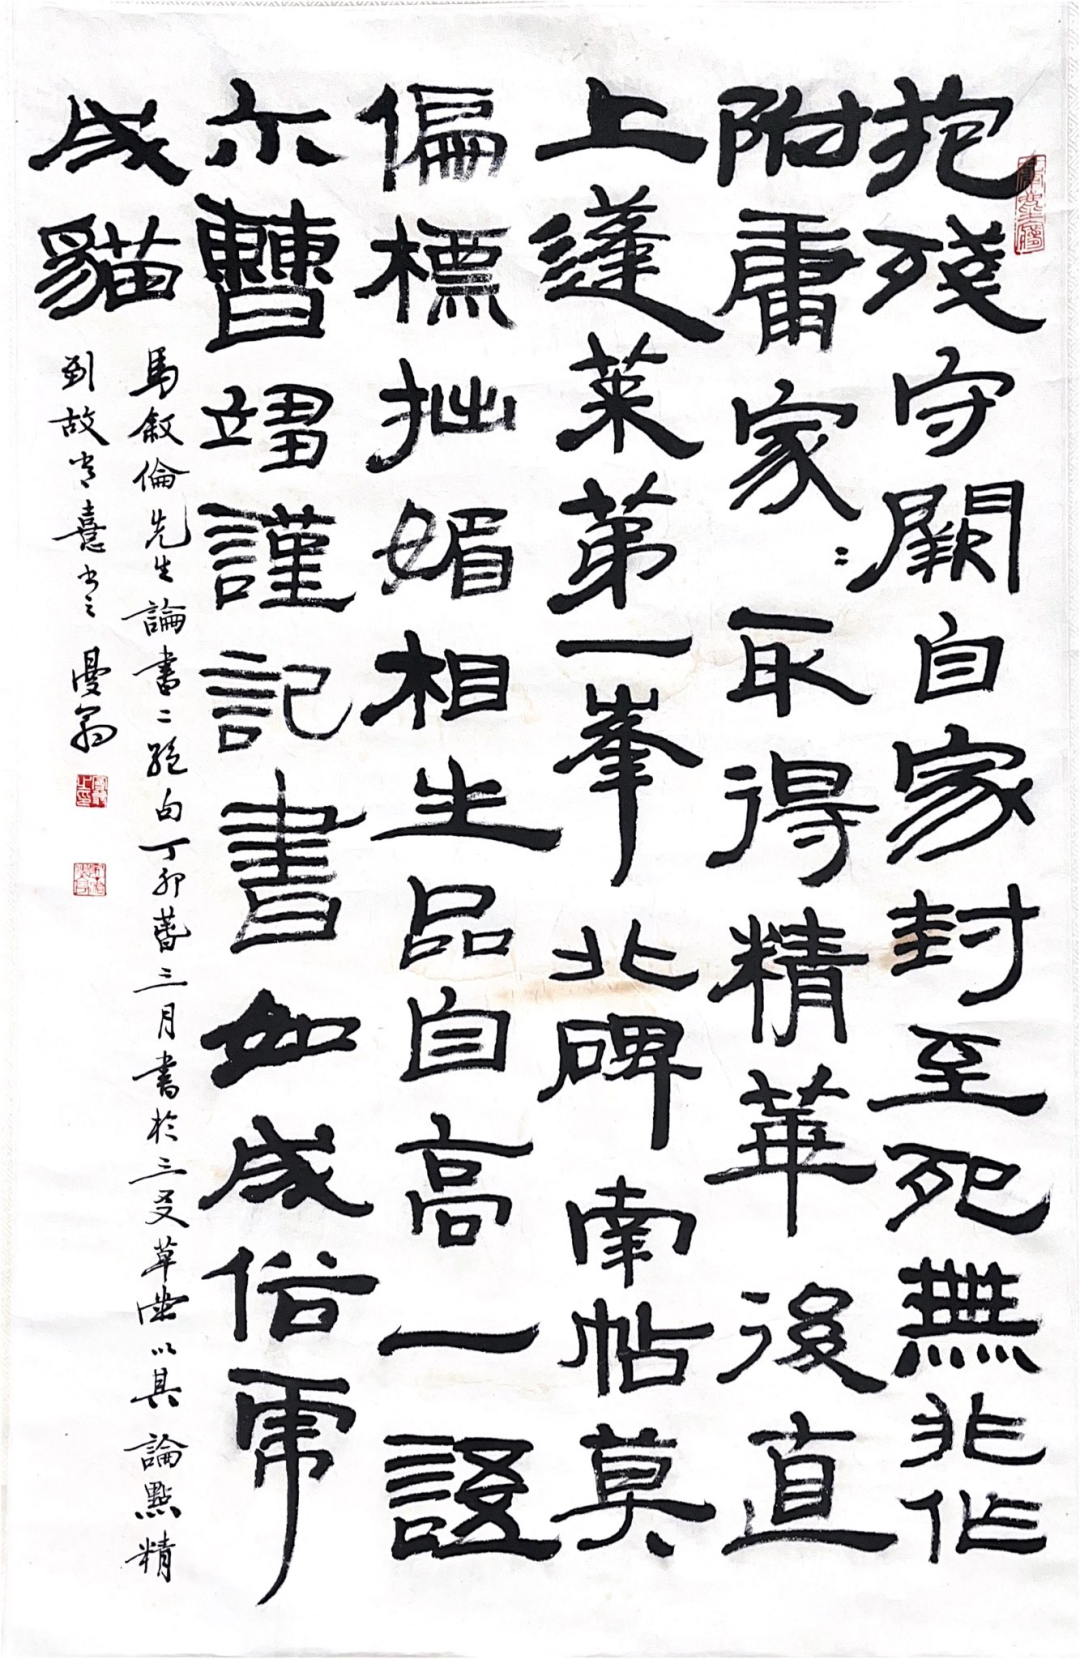 抱殘守闕自家封至死無非作
附庸家〻取得精華後直
上蓬萊第一峯北碑南帖莫
偏標拙媚相生品自高一語
尔曹須謹記書如成俗虎
成貓
馬敘倫先生論書二絕句丁卯暮三月書於三叉草堂以其論點精
到故肯意書之 漫翁